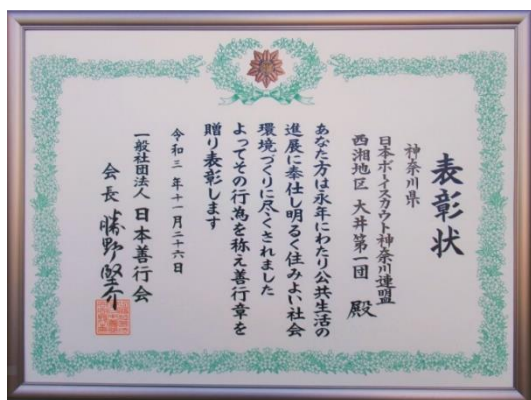 表彰状
神奈川県
日本ボーイスカウト神奈川連盟
西湘地区 大井第一団 殿
あなた方は永年にわたり公共生活の
進展に奉仕し明るく住みよい社会
環境づくりに尽くされました
よってその行為を称え善行章を
贈り表彰します
令和三年十一月二十六日
一般社団法人 日本善行会
会長 勝野堅介